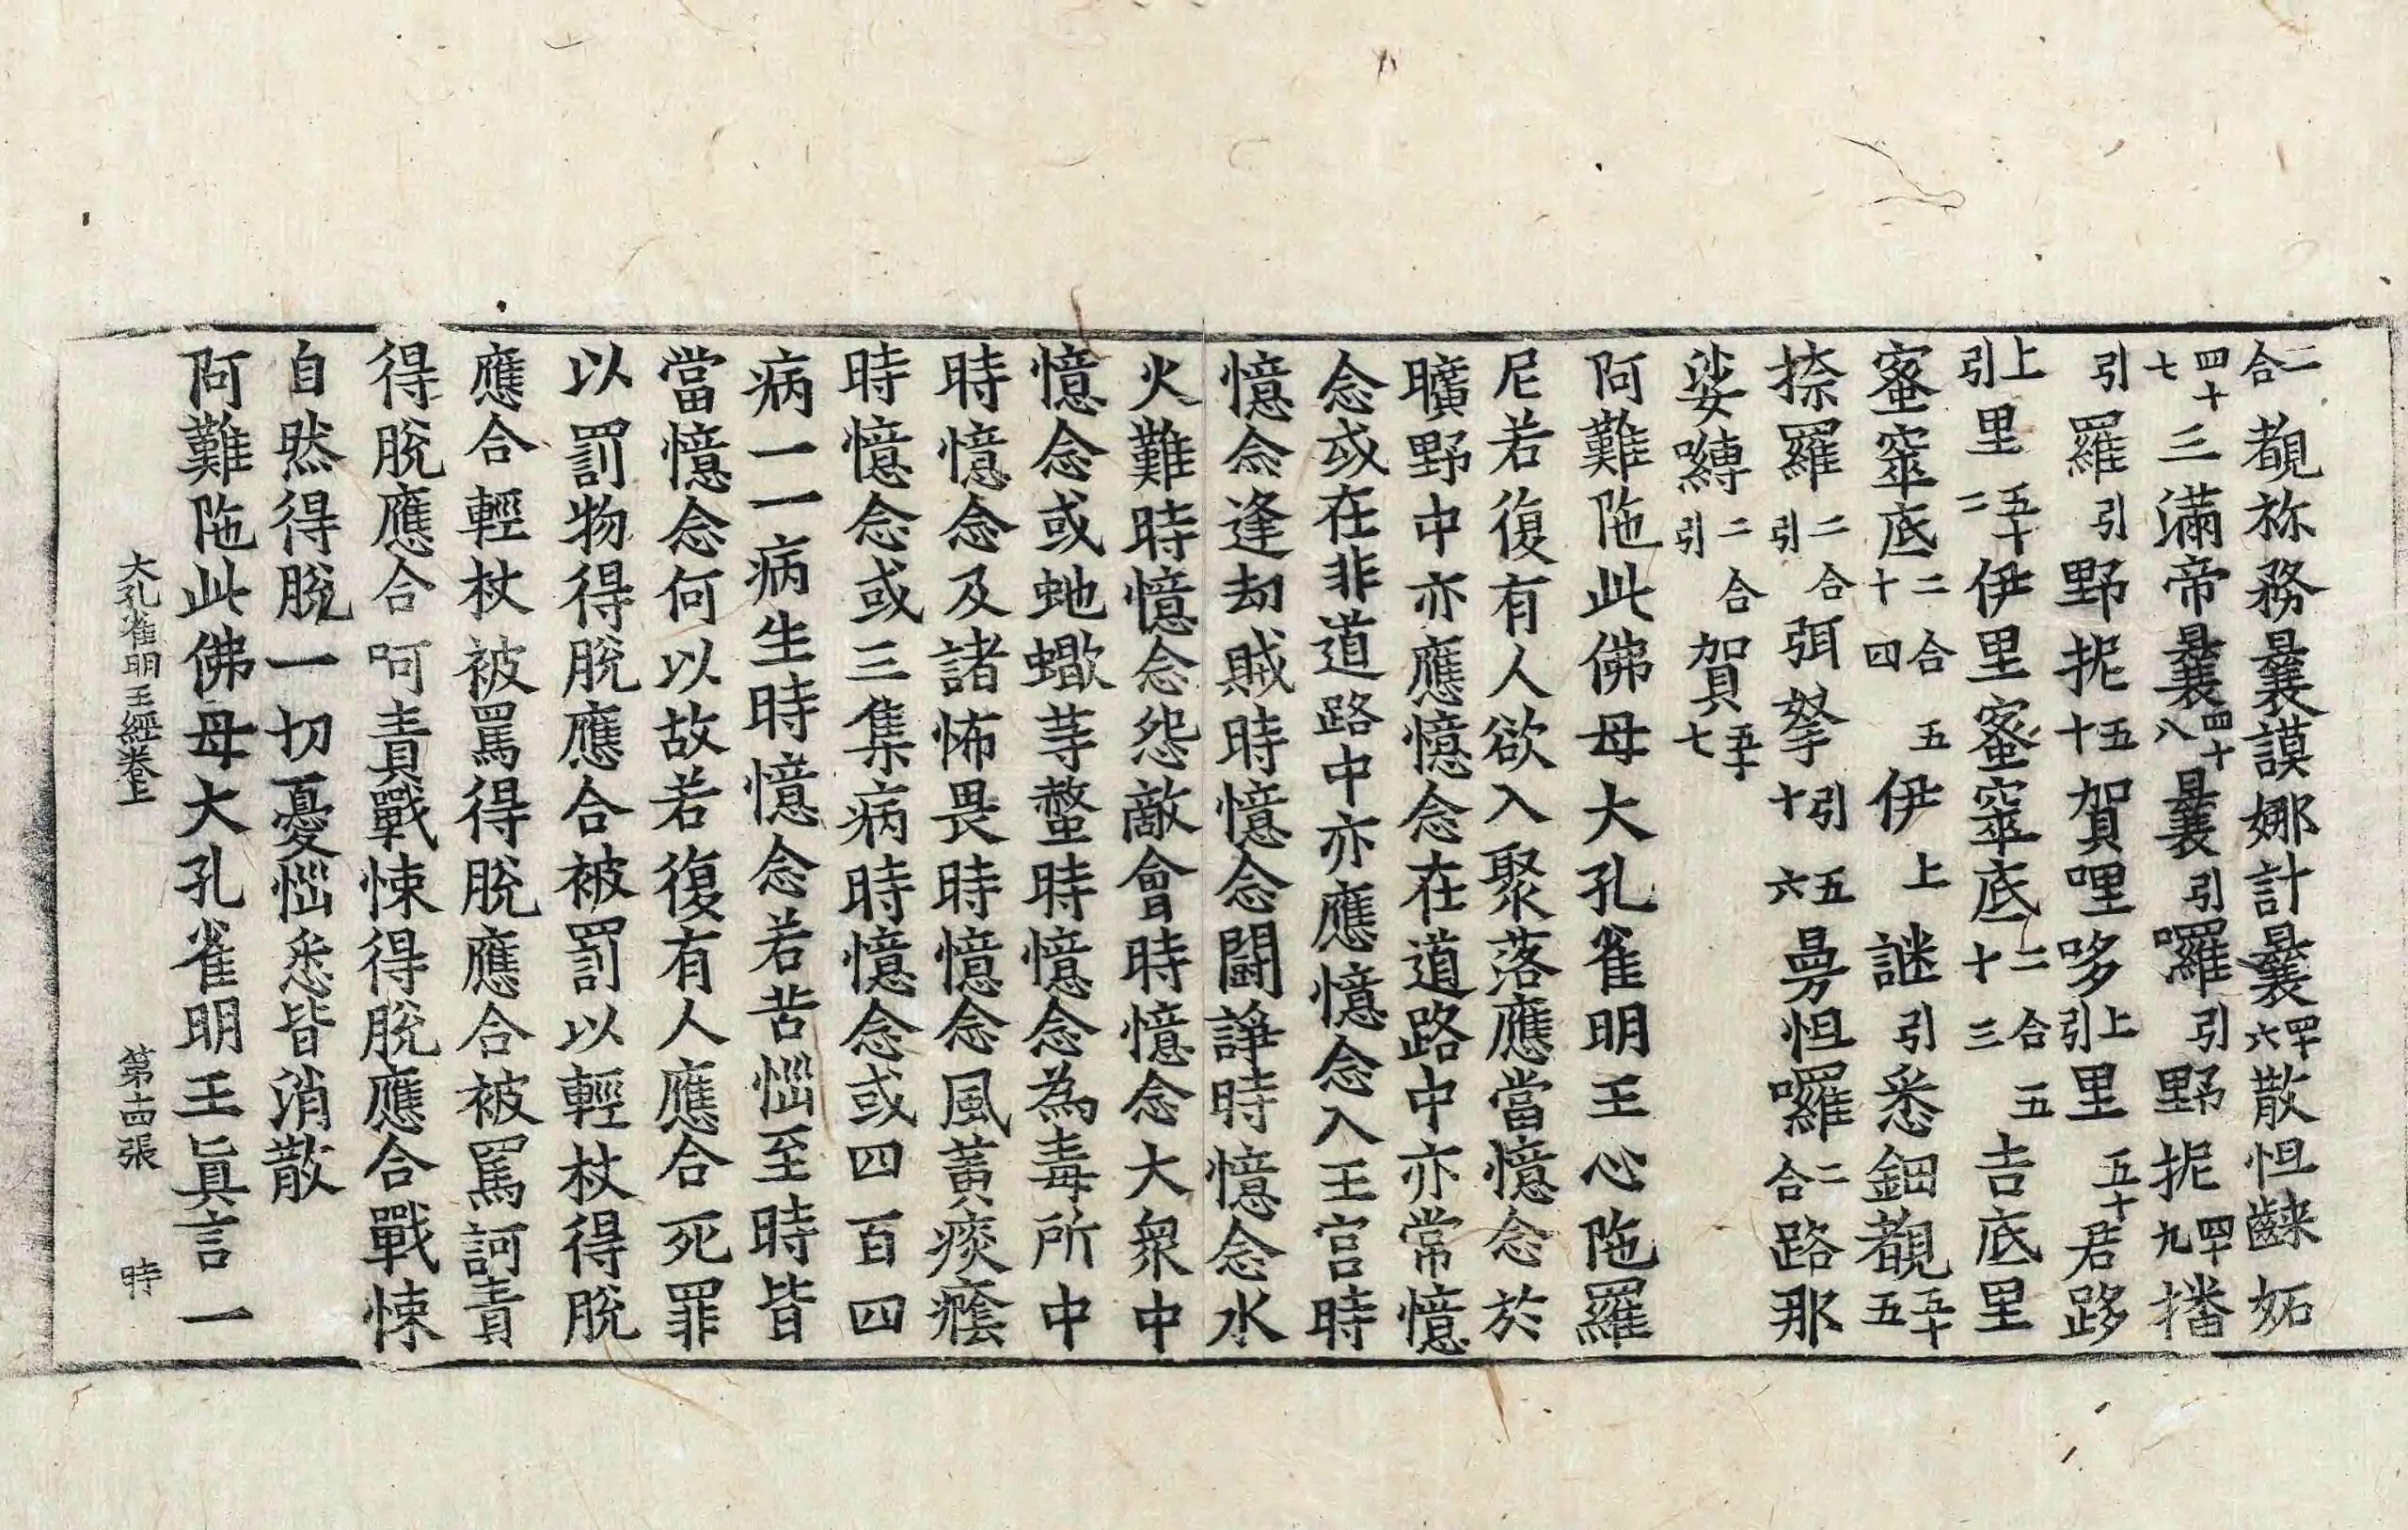 二合覩祢務曩謨娜計曩四十六散怛𪘨妬
四十七三滿帝曩四十八曩引囉引野抳四十九播
引羅引野抳五十賀哩哆上引里五十一君路
上引里五十二伊里蜜窒底二合五十三吉底里
蜜窒底二合五十四伊上謎引悉鈿覩五十五
捺羅二合引弭拏引五十六曼怛囉二合路那
娑嚩二合引賀五十七
阿難陁此佛母大孔雀明王心陁羅
尼若復有人欲入聚落應當憶念於
曠野中亦應憶念在道路中亦常憶
念或在非道路中亦應憶念入王宮時
憶念逢刧賊時憶念鬪諍時憶念水
火難時憶念怨敵會時憶念大衆中
憶念或虵蠍等螫時憶念為毒所中
時憶念及諸怖畏時憶念風黃痰癊
時憶念或三集病時憶念或四百四
病一一病生時憶念若苦惱至時皆
當憶念何以故若復有人應合死罪
以罰物得脫應合被罰以輕杖得脫
應合輕杖被罵得脫應合被罵訶責
得脫應合呵責戰悚得脫應合戰悚
自然得脫一切憂惱悉皆消散
阿難陁此佛母大孔雀明王眞言一
大孔雀明王經卷上 第十四張 時